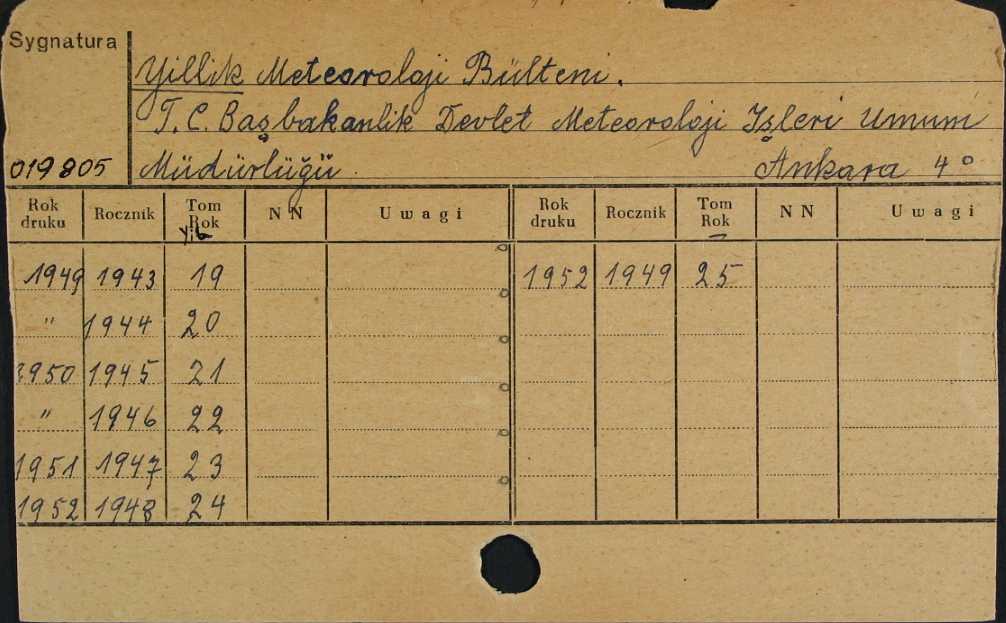 Sygnatura
Yillik Meteoroloji Bülteni.
T.C. Başbakanlik Devlet Meteoroloji Işleri Umum
019805 Müdürlüğü. Ankara 4°
Rok druku Rocznik Tom Rok NN Uwagi Rok druku Rocznik Tom Rok NN Uwagi
Yil
1949 1943 19 1952 1949 25
" 1944 20
1950 1945 21
" 1946 22
1951 1947 23
1952 1948 24